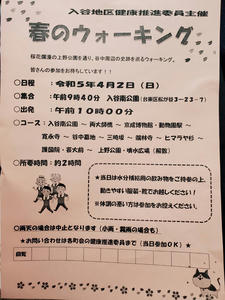 入谷地区健康推進委員主催
春のウォーキング
桜花爛漫の上野公園を通り、谷中周辺の史跡を巡るウォーキング。
皆さんの参加をお待ちしています!!
○日程 : 令和5年4月2日(日)
○集合 : 午前9時40分 入谷南公園(台東区松が谷3-23-7)
○出発 : 午前10時00分
○コース : 入谷南公園 ~ 両大師橋 ~ 京成博物館・動物園駅 ~
寛永寺 ~ 谷中墓地 ~ 三崎坂 ~ ~ ヒマラヤ杉 ~
護国院・芸大前 ~ 上野公園・噴水広場(解散)
○所要時間 : 約2時間
★当日は水分補給用の飲み物をご持参の上、
動きやすい服装・靴でお越しください!
※体調の悪い方は参加をお控えください。
○雨天の場合は中止となります(小雨・霧雨の場合も)
★お問い合わせは各町会の健康推進委員まで(当日参加OK)★